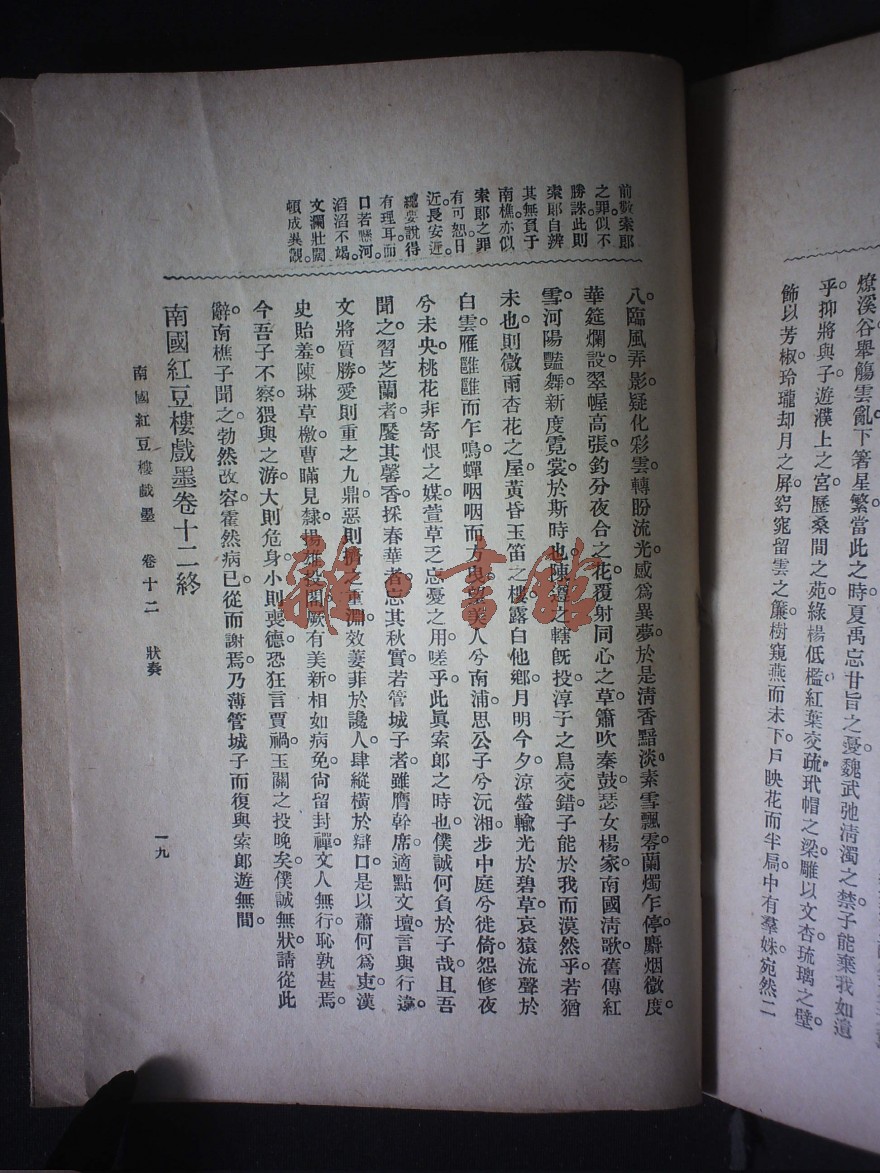 燎溪谷舉觴雲亂下箸星繁當此之時夏禹忘甘旨之憂。魏武弛淸濁之禁子能棄我如遺
乎。抑將與子遊濮上之宮。歷桑間之苑綠楊低檻紅葉交疏。玳帽之梁。雕以文杏。琉璃之壁。
飾以芳椒。玲瓏却月之屏。窈窕留雲之簾。樹窺燕而未下。戶映花而半扃。中有羣姝宛然二
前數索郎
之罪似不
勝誅此則
索郎自辨
其無負于
南樵亦似
索郎之罪
有可恕。日
近長安近。
總要說得
有理耳。而
口若懸河。
滔滔不竭。
文瀾壯闊
頓成異觀。
八。臨風弄影。疑化彩雲。轉盼流光。感爲異夢。於是淸香黯淡素雪飄零。蘭燭乍停。麝烟微度。
華筵爛設。翠幄高張。釣分夜合之花。覆射同心之草。簫吹秦鼓瑟女楊家。南國淸歌。舊傳紅
雪。河陽豔舞。新度霓裳。於斯時也。陳遵之轄旣投。淳于之舃交錯。子能於我而漠然乎。若猶
未也。則微雨杏花之屋。黃昏玉笛之樓。露白他鄉。月明今夕。涼螢輸光於碧草。哀猿流聲於
白雲。雁嗈嗈而乍鳴。蟬咽咽而方曳。望美人兮南浦。思公子兮沅湘。步中庭兮徙倚。怨修夜
兮未央。桃花非寄恨之媒。萱草乏忘憂之用。嗟乎。此眞索郎之時也。僕誠何負於子哉。且吾
聞之。習芝蘭者。饜其馨香。採春華者。忘其秋實。若管城子者。雖膺幹席。適點文壇。言與行違。
文將質勝。愛則重之九鼎。惡則擠之重淵。效萋菲於讒人。肆縱橫於辯口。是以蕭何爲吏。漢
史貽羞。陳琳草檄。曹瞞見隸。揚雄投閣。厥有美新。相如病免。尙留封禪。文人無行。恥孰甚焉。
今吾子不察。猥與之游。大則危身。小則喪德。恐狂言賈禍。玉關之投晚矣。僕誠無狀。請從此
辭。南樵子聞之。勃然改容。霍然病已。從而謝焉。乃薄管城子而復與索郎遊無間。
南國紅豆樓戲墨卷十二終
南國紅豆樓戲墨 卷十二 狀奏
一九
雜·書館